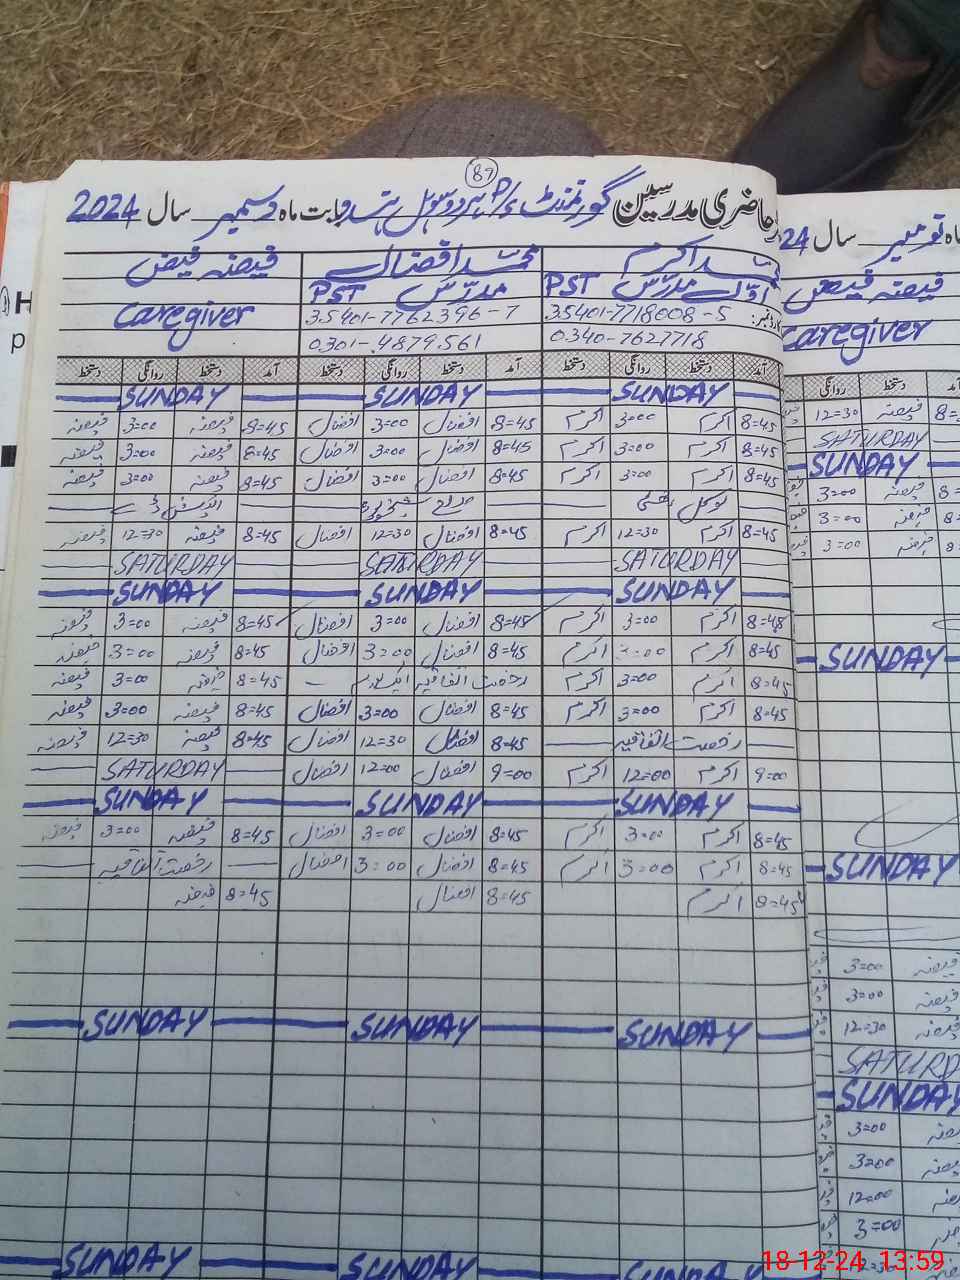 89
حاضری مدرسین گورنمنٹ P/S بابت ماہ دسمبر سال 2024
محمد اکرم محمد افضال فیضہ فیض
اول مدرس PST مدرس PST Caregiver
35401-7718008-5 35401-7762396-7
0340-7627718 0301-4879561
آمد دستخط روانگی دستخط آمد دستخط روانگی دستخط آمد دستخط روانگی دستخط
SUNDAY SUNDAY SUNDAY
8=45 اکرم 3=00 اکرم 8=45 افضال 3=00 افضال 8=45 فیضہ 3=00 فیضہ
8=45 اکرم 3=00 اکرم 8=45 افضال 3=00 افضال 8=45 فیضہ 3=00 فیضہ
8=45 اکرم 3=00 اکرم 8=45 افضال 3=00 افضال 8=45 فیضہ 3=00 فیضہ
لوکل
8=45 اکرم 12=30 اکرم 8=45 افضال 12=30 افضال 8=45 فیضہ 12=30 فیضہ
SATURDAY SATURDAY SATURDAY
SUNDAY SUNDAY SUNDAY
8=45 اکرم 3=00 اکرم 8=45 افضال 3=00 افضال 8=45 فیضہ 3=00 فیضہ
8=45 اکرم 3=00 اکرم 8=45 افضال 3=00 افضال 8=45 فیضہ 3=00 فیضہ
8=45 اکرم 3=00 اکرم رخصت اتفاقیہ ایک یوم 8=45 فیضہ 3=00 فیضہ
8=45 اکرم 3=00 اکرم 8=45 افضال 3=00 افضال 8=45 فیضہ 3=00 فیضہ
رخصت اتفاقیہ 8=45 افضال 12=30 افضال 8=45 فیضہ 12=30 فیضہ
9=00 اکرم 12=00 اکرم 9=00 افضال 12=00 افضال SATURDAY
SUNDAY SUNDAY SUNDAY
8=45 اکرم 3=00 اکرم 8=45 افضال 3=00 افضال 8=45 فیضہ 3=00 فیضہ
8=45 اکرم 3=00 اکرم 8=45 افضال 3=00 افضال رخصت اتفاقیہ
8=45 اکرم 8=45 افضال 8=45 فیضہ
SUNDAY SUNDAY SUNDAY
SUNDAY SUNDAY SUNDAY
ماہ نومبر سال 24
فیضہ فیض
Caregiver
روانگی دستخط آمد
فیضہ 12=30
SATURDAY
SUNDAY
فیضہ 3=00
فیضہ 3=00
3=00
SUNDAY
SUNDAY
فیضہ 3=00
فیضہ 3=00
فیضہ 12=30
SATURD
SUNDAY
3=00
فیضہ 3=00
12=00
3=00
12=30
18-12-24 13:59